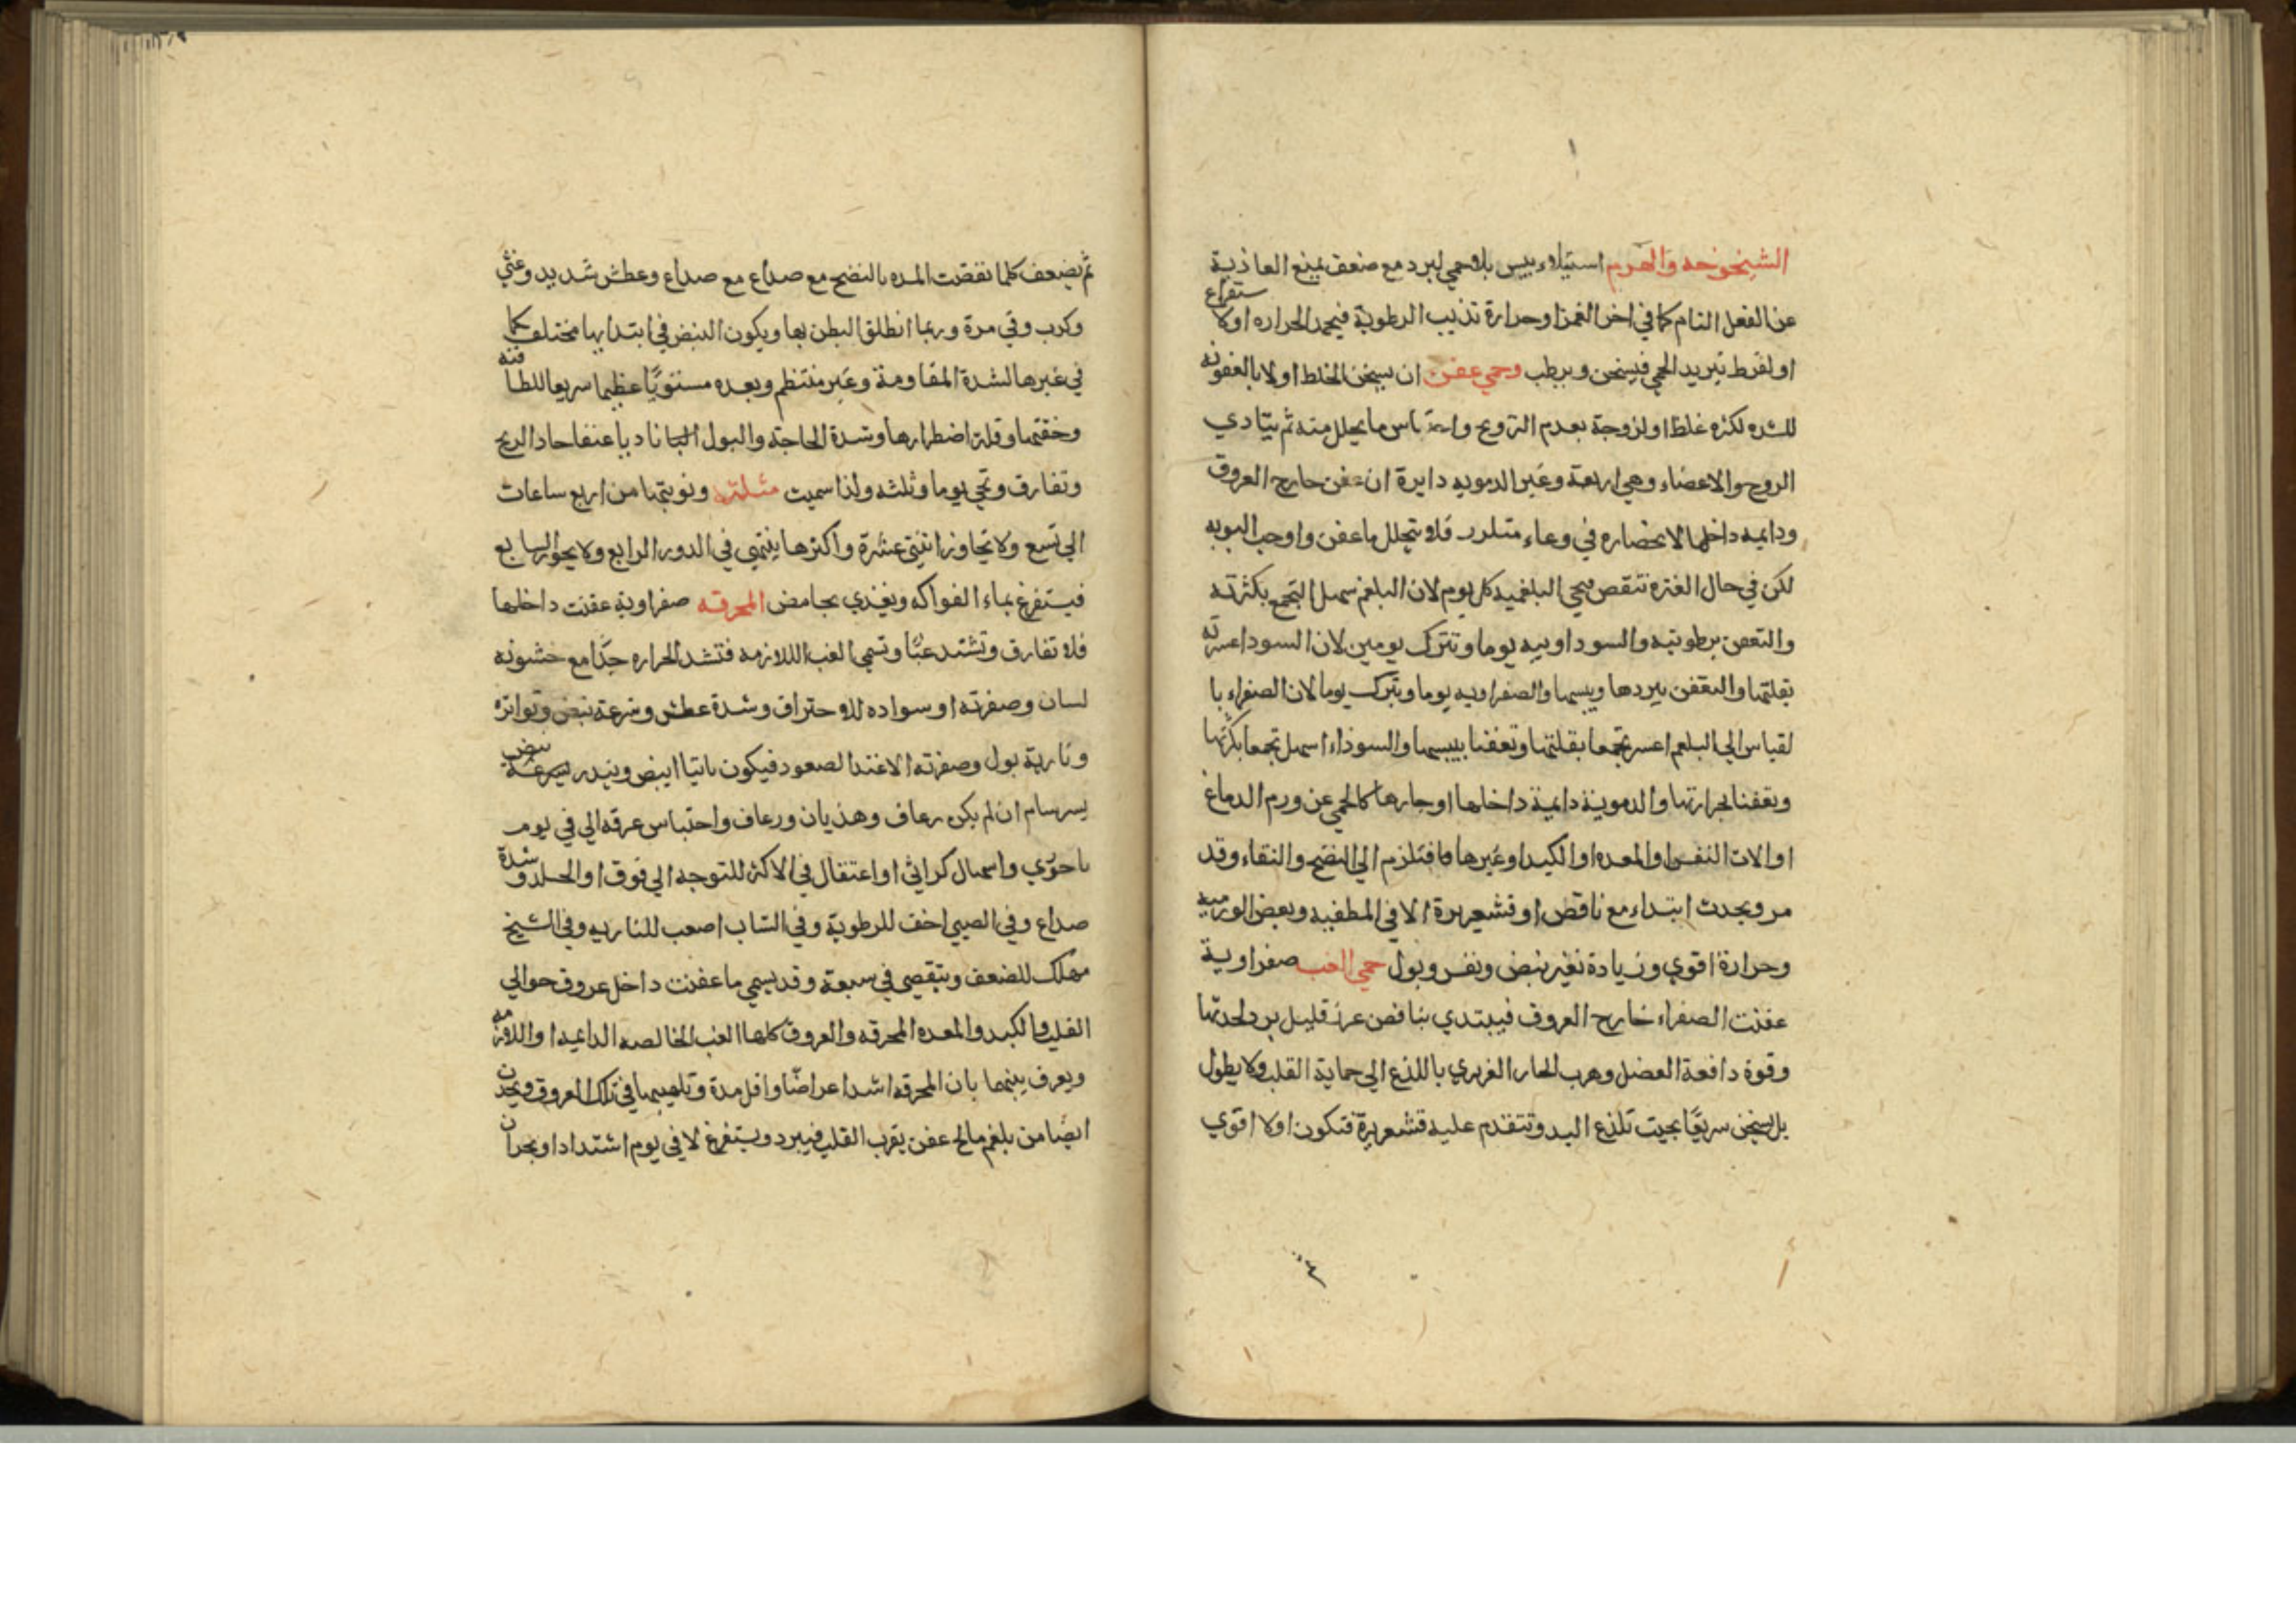 الشيخوخه والهرم استيلاء يبس بلا حمي لبرد مع ضعف يمنع الغاذية
عن الفعل التام كما في اخر العمر او حرارة تذيب الرطوبة فيخمد الحراره اولا ستفراغ
او لفرط تبريد الحمي فيسخن ويرطب وحمي عفن ان يسخن الخلط اولا بالعفونه
للشده لكثره غلظ او لزوجة بعدم التروح واحتباس ما يحلل منه ثم يتادي
الروح والاعضاء وهي اربعة وغير الدمويه دايرة ان عفن خارج العروق
ودايمه داخلها لانحصاره في وعاء فلا يتحلل ما عفن واوجب النوبه
لكن في حال الفتره تنقص فتجي البلغميه كل يوم لان البلغم سهل التجمع بكثرته
والتعفن برطوبته والسوداويه يوما وتترك يومين لان السودا عسرته
بقلتها والتعفن ببردها ويبسها والصفراويه يوما وتترك يوما لان الصفراء با
لقياس الي البلغم اعسر تجمعا بقلتها وتعفنا بيبسها والسوداء اسهل تجمعا بكثرتها
وتعفنا بحرارتها والدموية دايمة داخلها او جارها كالحمي عن ورم الدماغ
او الات النفس او المعده او الكبد او غيرها فتلزم الي النضج والنقاء وقد
مر ويحدث ابتداء مع نافض او قشعريرة الا في المطفيه وبعض الورميه
وحرارة اقوي وزيادة تغير نبض ونفس وبول حمي الغب صفراوية
عفنت الصفراء خارج العروق فيبتدي بنافض عن قليل برد لحدتها
وقوة دافعة العضل وهرب الحار الغريزي باللذع الي حماية القلب ولا يطول
بل يسخن سريعا بحيث تلذع اليد وتتقدم عليه قشعريرة فتكون اولا اقوي
ثم يضعف كلما نقضت المده بالنضج مع صداع مع صداع وعطش شديد وغثي
وكرب وقي مرة وربما انطلق البطن بها ويكون النبض في ابتدايها مختلف كما
في غيرها لشدة المقاومة وغير منتظم وبعده مستويا عظيما سريعا للطافته
وخفتها وقلة اضطرارها وشدة الحاجة والبول ناريا عنفا حاد الريح
وتفارق وتجي يوما وثلثه ولذا سميت مثلثه ونوبتها من اربع ساعات
الي تسع ولا تجاوز اثنتي عشرة واكثرها ينتهي في الدور الرابع ولا يجوز السابع
فيستفرغ بماء الفواكه ويغذي بحامض المحرقه صفراوية عفنت داخلها
فلا تفارق وتشتد غبا وتسمي الغب اللازمه فتشد الحراره جدا مع خشونه
لسان وصفرته او سواده للاحتراق وشدة عطش وسرعة نبض وتواتره
ونارية بول وصفرته الا عند الصعود فيكون مائيا ابيض وينذر بسرعة نبض
بسرسام ان لم يكن رعاف وهذيان ورعاف واحتباس عرقه الي في يوم
باحوري واسهال كراثي او اعتقال في الاكثر للتوجه الي فوق او الجلد وشدة
صداع وفي الصبي اخف للرطوبة وفي الشاب اصعب للناريه وفي الشيخ
مهلك للضعف ويتقصي في سبعة وقد يسمي ما عفنت داخل عروق حوالي
القلب والكبد والمعده المحرقه والعروق كلها الغب الخالصه الدايمه او اللازمه
ويعرف بينهما بان المحرقه اشد اعراضا واقل مدة وتلهيبها في تلك العروق ويحدث
ايضا من بلغم مالح عفن بقرب القلب فيبرد ويستفرغ لا في يوم اشتداد او بحران